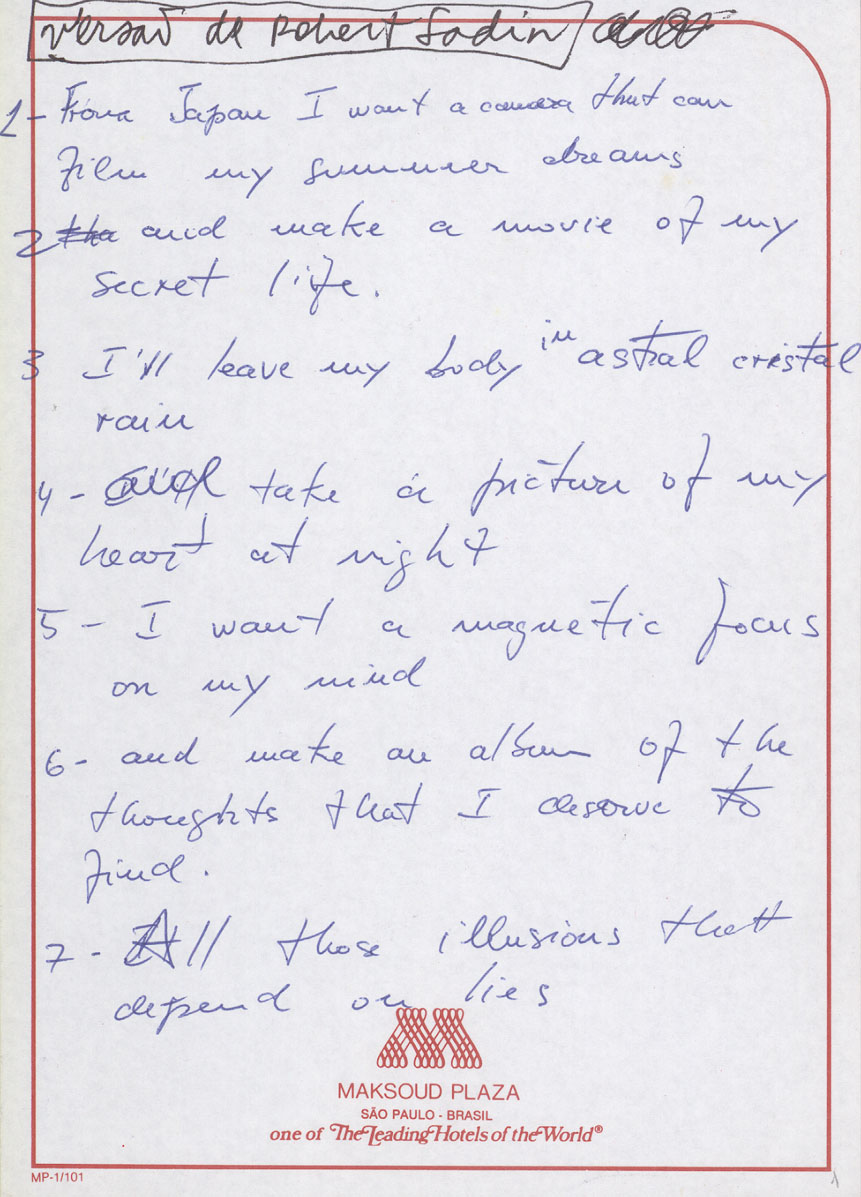 Versão de Robert Sadin
1- From Japan I want a camera that can
film my summer dreams
2 and make a movie of my
secret life.
3 I'll leave my body in astral cristal
rain
4- and take a picture of my
heart at night
5- I want a magnetic focus
on my mind
6- and make an album of the
thoughts that I deserve to
find.
7- All those illusions that
depend on lies
MAKSOUD PLAZA
SÃO PAULO - BRASIL
one of The Leading Hotels of the World®
MP-1/101